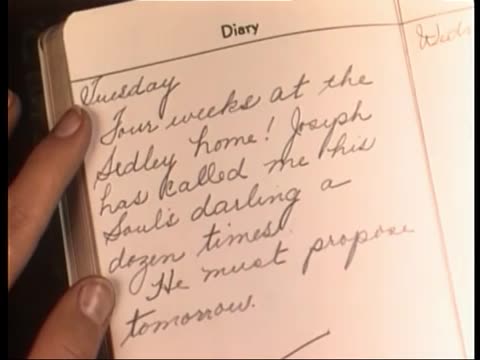 Diary
Tuesday
Four weeks at the
Sedley home! Joseph
has called me his
Soul's darling a
dozen times!
He must propose
tomorrow.
Weds